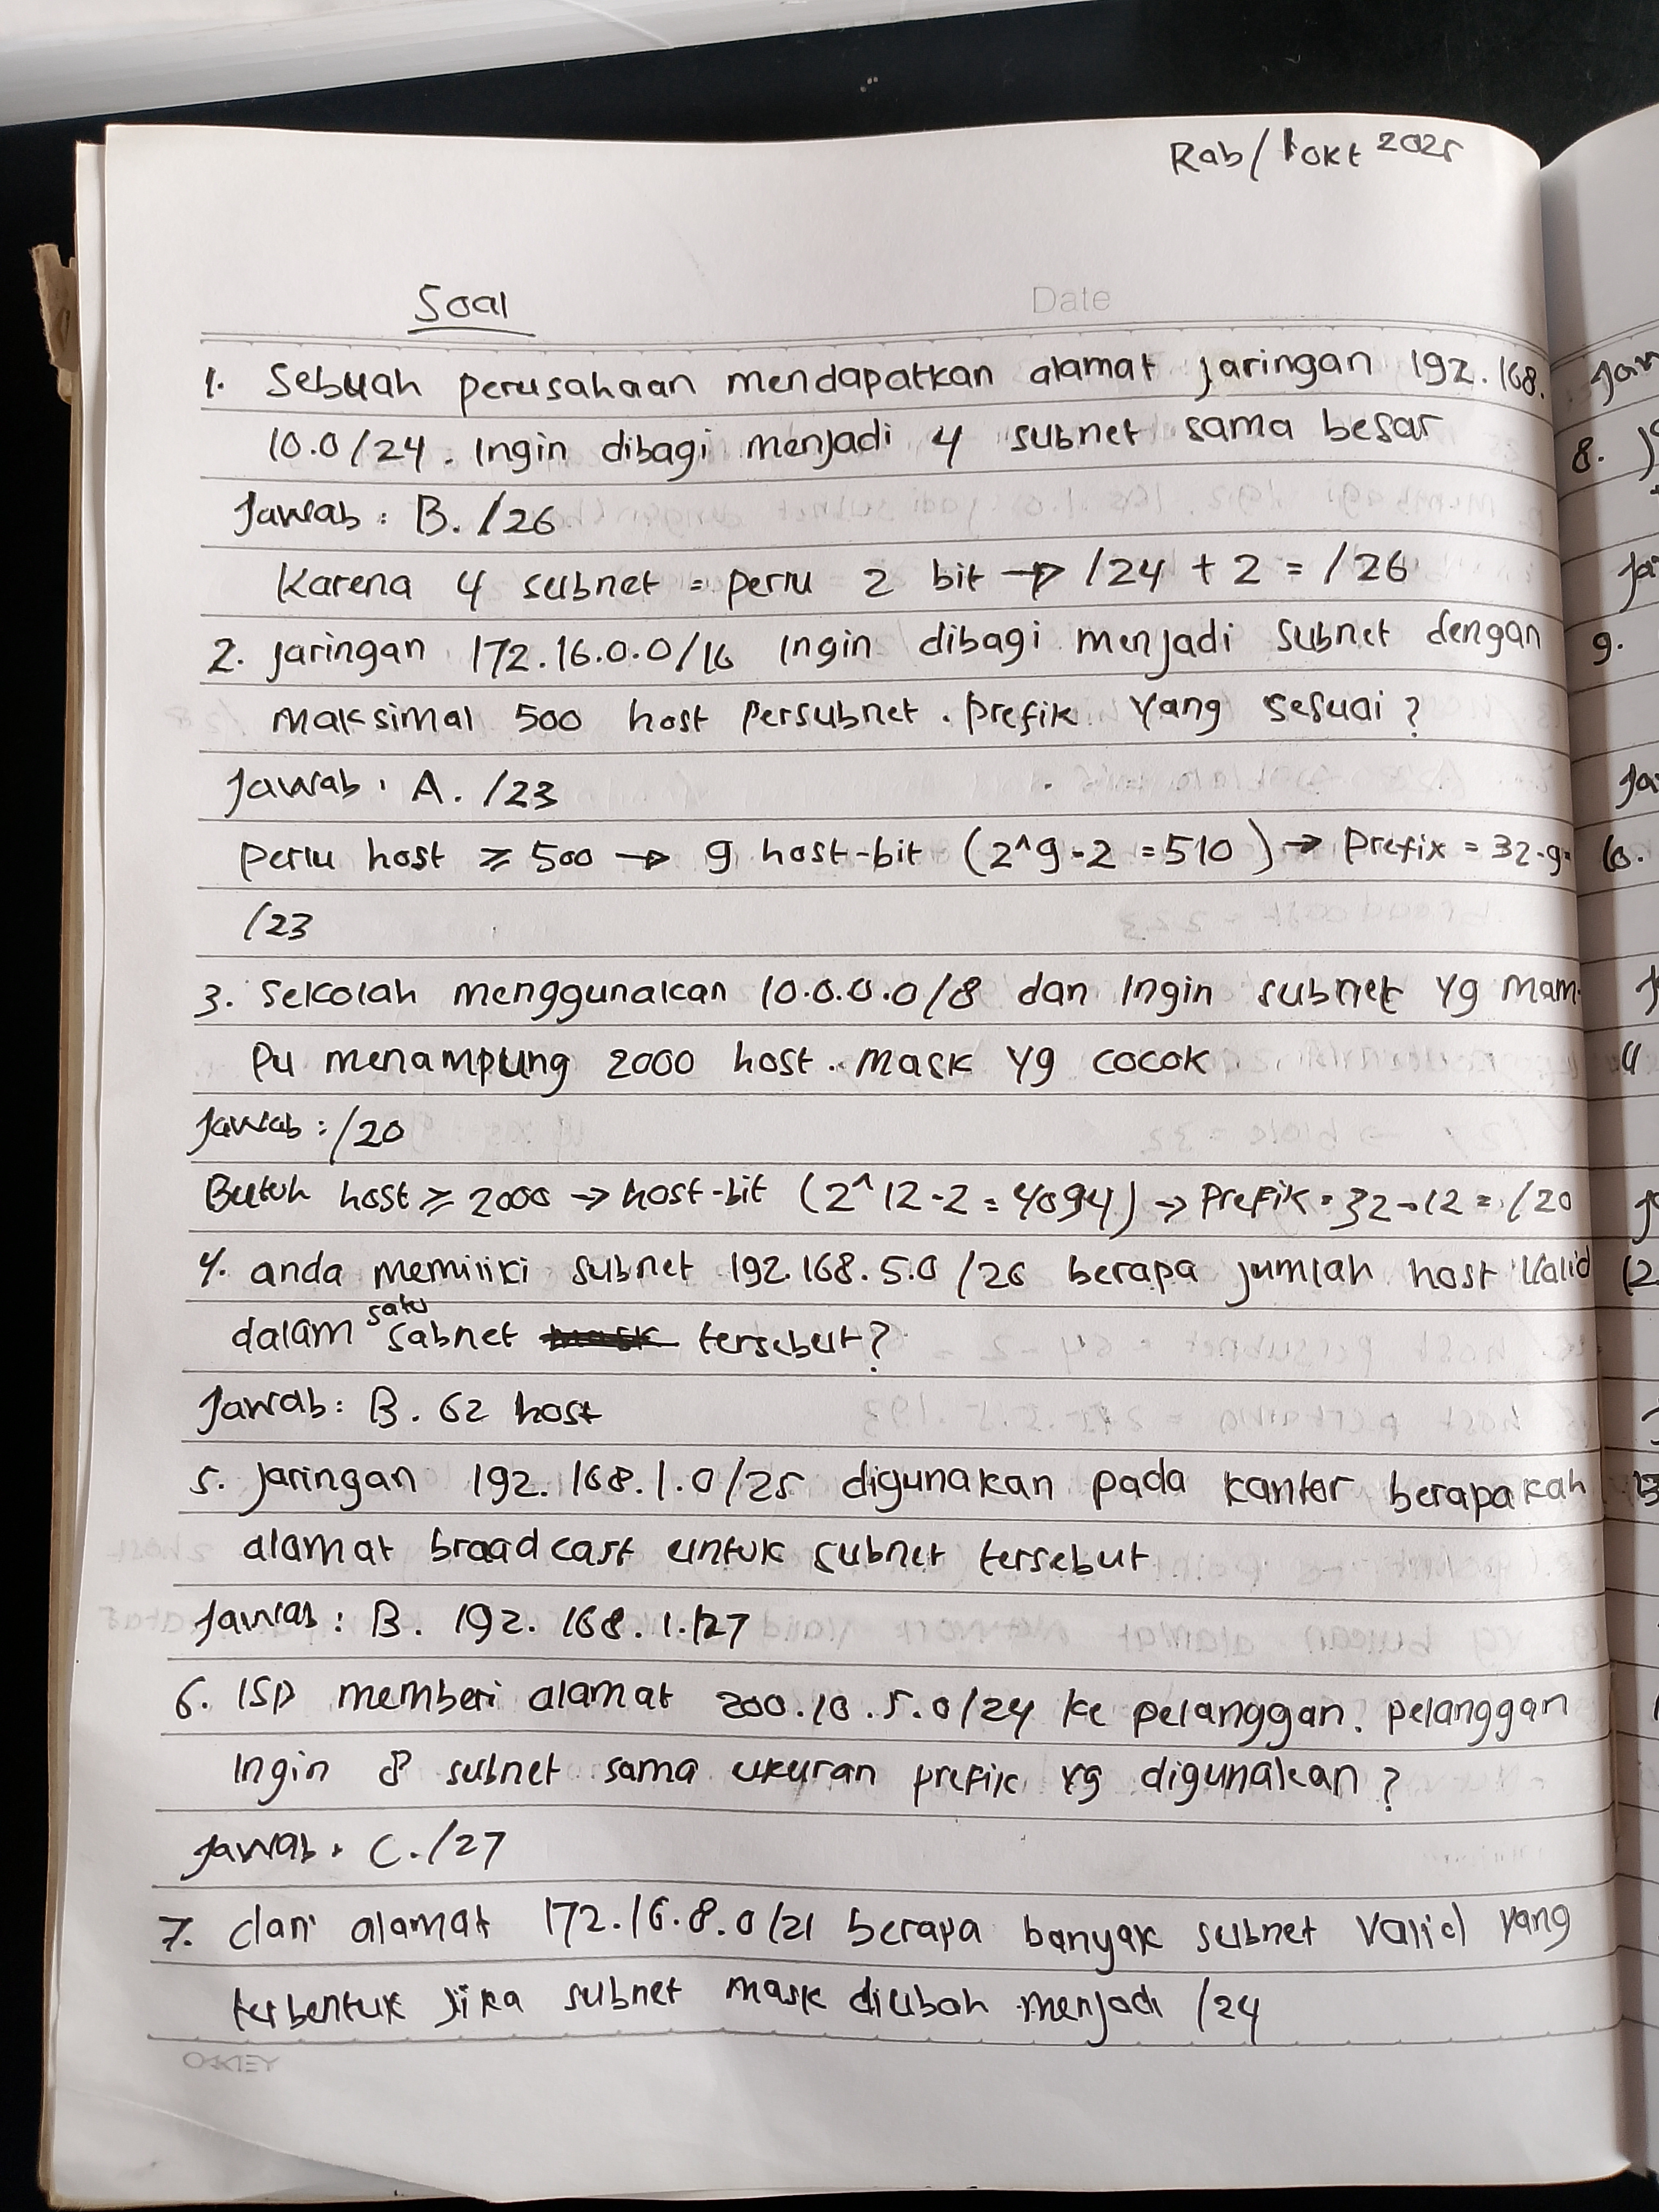 Rab/1 Okt 2025
Soal
Date
1. Sebuah perusahaan mendapatkan alamat jaringan 192.168.
10.0/24. Ingin dibagi menjadi 4 subnet sama besar
Jawab : B. /26
Karena 4 subnet = perlu 2 bit → /24 + 2 = /26
2. jaringan 172.16.0.0/16 Ingin dibagi menjadi subnet dengan
maksimal 500 host persubnet. prefik yang sesuai?
Jawab : A. /23
perlu host ≥ 500 → 9 host-bit (2^9-2 = 510) → prefix = 32-9=
/23
3. Sekolah menggunakan 10.0.0.0/8 dan Ingin subnet yg mam-
pu menampung 2000 host. mask yg cocok
Jawab : /20
Butuh host ≥ 2000 → host-bit (2^12-2 = 4094) → prefik = 32-12 = /20
4. anda memiliki subnet 192.168.5.0/26 berapa jumlah host valid
dalam satu sabnet tersebut?
Jawab : B. 62 host
5. jaringan 192.168.1.0/25 digunakan pada kantor berapakah
alamat broadcast untuk subnet tersebut
Jawab : B. 192.168.1.127
6. ISP memberi alamat 200.10.5.0/24 ke pelanggan. pelanggan
Ingin 8 subnet sama ukuran prefik yg digunakan?
Jawab : C. /27
7. dari alamat 172.16.8.0/21 berapa banyak subnet valid yang
terbentuk jika subnet mask diubah menjadi /24
OAKLEY
8.
9.